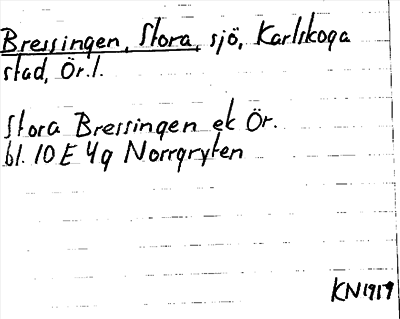 Bressingen, Stora, sjö, Karlskoga
stad, Ör.l.
Stora Bressingen ek Ör.
bl. 10 E 4g Norrgryten
KN1919